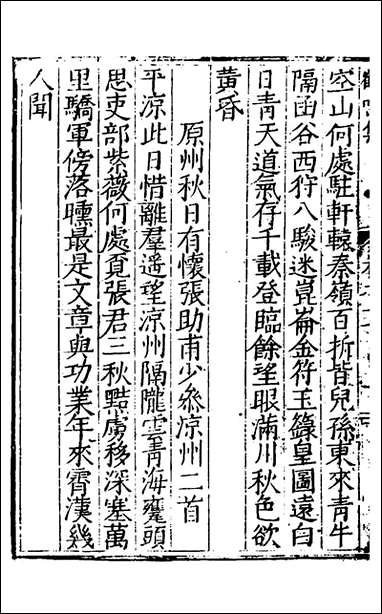 空山何處駐軒轅秦嶺百折皆兒孫東來青牛
隔函谷西狩八駿迷崑崙金符玉籙皇圖遠白
日青天道氣存千載登臨餘望眼滿川秋色欲
黃昏
原州秋日有懷張助甫少參涼州二首
平涼此日惜離羣遥望涼州隔隴雲青海甕頭
思吏部紫薇何處覓張君三秋黠虜移深塞萬
里驕軍傍落曛最是文章與功業年來霄漢幾
人聞